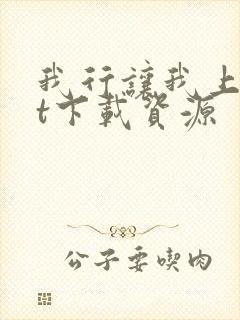 我行讓我上
t下載資源
公子要喫肉